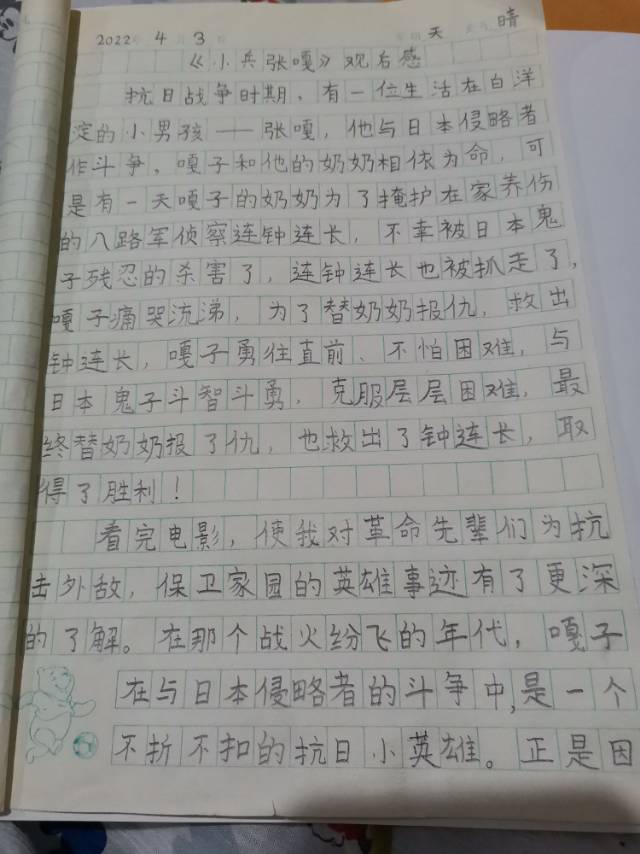 2022年 4月 3日 星期天 天气晴
《小兵张嘎》观后感
抗日战争时期，有一位生活在白洋
淀的小男孩——张嘎，他与日本侵略者
作斗争，嘎子和他的奶奶相依为命，可
是有一天嘎子的奶奶为了掩护在家养伤
的八路军侦察连钟连长，不幸被日本鬼
子残忍的杀害了，连钟连长也被抓走了，
嘎子痛哭流涕，为了替奶奶报仇，救出
钟连长，嘎子勇往直前、不怕困难，与
日本鬼子斗智斗勇，克服层层困难，最
终替奶奶报了仇，也救出了钟连长，取
得了胜利！
看完电影，使我对革命先辈们为抗
击外敌，保卫家园的英雄事迹有了更深
的了解。在那个战火纷飞的年代，嘎子
在与日本侵略者的斗争中，是一个
不折不扣的抗日小英雄。正是因